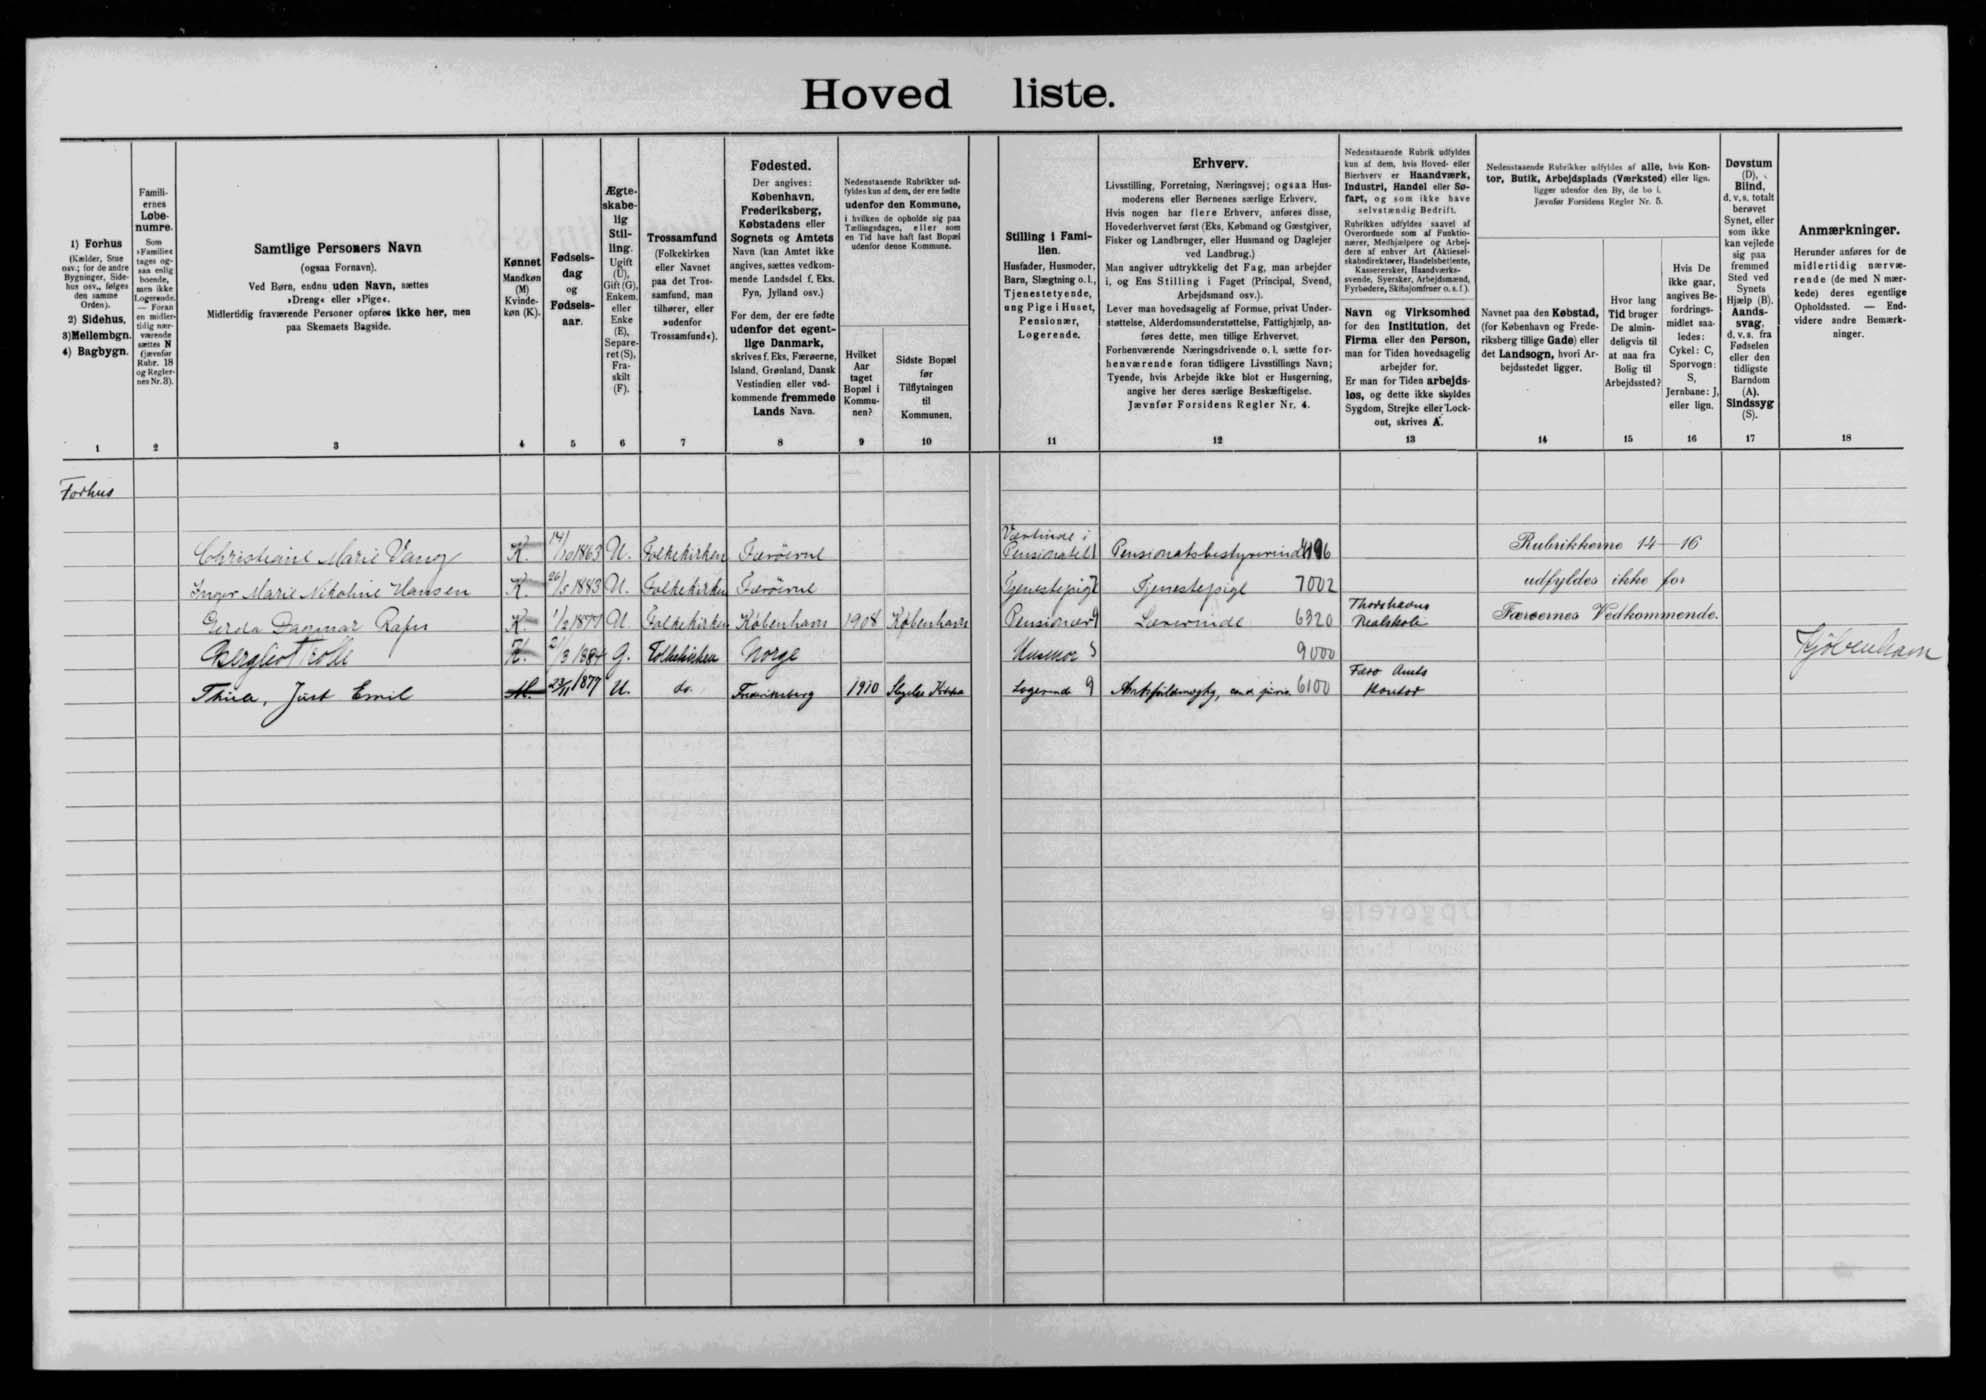 Hoved liste.
1) Forhus
(Kælder, Stue
osv.; for de andre
Bygninger, Side-
hus osv., følges
den samme
Orden).
2) Sidehus,
3) Mellembgn.
4) Bagbygn.
Famili-
ernes
Løbe-
numre.
Som
»Familie«
tages og-
saa enlig
boende,
men ikke
Logerende.
— Foran
en midler-
tidig nær-
værende
sættes N
(jævnfør
Rubr. 18
og Regler-
nes Nr. 3).
Samtlige Personers Navn
(ogsaa Fornavn).
Ved Børn, endnu uden Navn, sættes
»Dreng« eller »Pige«.
Midlertidig fraværende Personer opføres ikke her, men
paa Skemaets Bagside.
Kønnet
Mandkøn
(M)
Kvinde-
køn (K).
Fødsels-
dag
og
Fødsels-
aar.
Ægte-
skabe-
lig
Stil-
ling.
Ugift
(U),
Gift (G),
Enkem.
eller
Enke
(E),
Separe-
ret (S),
Fra-
skilt
(F).
Trossamfund
(Folkekirken
eller Navnet
paa det Tros-
samfund, man
tilhører, eller
»udenfor
Trossamfund«).
Fødested.
Der angives:
København,
Frederiksberg,
Købstadens eller
Sognets og Amtets
Navn (kan Amtet ikke
angives, sættes vedkom-
mende Landsdel f. Eks.
Fyn, Jylland osv.)
For dem, der ere fødte
udenfor det egent-
lige Danmark,
skrives f. Eks. Færøerne,
Island, Grønland, Dansk
Vestindien eller ved-
kommende fremmede
Lands Navn.
Nedenstaaende Rubrikker ud-
fyldes kun af dem, der ere fødte
udenfor den Kommune,
i hvilken de opholde sig paa
Tællingsdagen, eller som
en Tid have haft fast Bopæl
udenfor denne Kommune.
Hvilket
Aar
taget
Bopæl i
Kommu-
nen?
Sidste Bopæl
før
Tilflytningen
til
Kommunen.
Stilling i Fami-
lien.
Husfader, Husmoder,
Barn, Slægtning o. l.,
Tjenestetyende,
ung Pige i Huset,
Pensionær,
Logerende.
Erhverv.
Livsstilling, Forretning, Næringsvej; ogsaa Hus-
moderens eller Børnenes særlige Erhverv.
Hvis nogen har flere Erhverv, anføres disse,
Hovederhvervet først (Eks. Købmand og Gæstgiver,
Fisker og Landbruger, eller Husmand og Daglejer
ved Landbrug.)
Man angiver udtrykkelig det Fag, man arbejder
i, og Ens Stilling i Faget (Principal, Svend,
Arbejdsmand osv.).
Lever man hovedsagelig af Formue, privat Under-
støttelse, Alderdomsunderstøttelse, Fattighjælp, an-
føres dette, men tillige Erhvervet.
Forhenværende Næringsdrivende o. l. sætte for-
henværende foran tidligere Livsstillings Navn;
Tyende, hvis Arbejde ikke blot er Husgerning,
angive her deres særlige Beskæftigelse.
Jævnfør Forsidens Regler Nr. 4.
Nedenstaaende Rubrik udfyldes
kun af dem, hvis Hoved- eller
Bierhverv er Haandværk,
Industri, Handel eller Sø-
fart, og som ikke have
selvstændig Bedrift.
Rubrikken udfyldes saavel af
Overordnede som af Funktio-
nærer, Medhjælpere og Arbej-
dere af enhver Art (Aktiesel-
skabsdirektører, Handelsbetjente,
Kassererskeer, Haandværks-
svende, Syersker, Arbejdsmænd,
Fyrbødere, Skibsjomfruer o. s. f.).
Navn og Virksomhed
for den Institution, det
Firma eller den Person,
man for Tiden hovedsagelig
arbejder for.
Er man for Tiden arbejds-
løs, og dette ikke skyldes
Sygdom, Strejke eller Lock-
out, skrives A.
Nedenstaaende Rubrikker udfyldes af alle, hvis Kon-
tor, Butik, Arbejdsplads (Værksted) eller lign.
ligger udenfor den By, de bo i.
Jævnfør Forsidens Regler Nr. 5.
Navnet paa den Købstad,
(for København og Frede-
riksberg tillige Gade) eller
det Landsogn, hvori Ar-
bejdsstedet ligger.
Hvor lang
Tid bruger
De almin-
deligvis til
at naa fra
Bolig til
Arbejdssted?
Hvis De
ikke gaar,
angives Be-
fordrings-
midlet saa-
ledes:
Cykel: C,
Sporvogn:
S,
Jernbane: J,
eller lign.
Døvstum
(D),
Blind,
d. v. s. totalt
berøvet
Synet, eller
som ikke
kan vejlede
sig paa
fremmed
Sted ved
Synets
Hjælp (B).
Aands-
svag,
d. v. s. fra
Fødselen
eller den
tidligste
Barndom
(A).
Sindssyg
(S).
Anmærkninger.
Herunder anføres for de
midlertidig nærvæ-
rende (de med N mær-
kede) deres egentlige
Opholdssted. — End-
videre andre Bemærk-
ninger.
1 2 3 4 5 6 7 8 9 10 11 12 13 14 15 16 17 18
Forhus
Værtinde i
Christiane Marie Vang K. 14/10 1863 U. Folkekirken Færöerne Pensionatet 1 Pensionatsbestyrerinde 4196 Rubrikkerne 14–16
Inger Marie Nikoline Hansen K. 26/5 1883 U. Folkekirken Færöerne Tjenestepige 7 Tjenestepige 7002 udfyldes ikke for
Thorshavns
Gerda Dagmar Rafn K. 1/2 1877 U. Folkekirken København 1908 København Pensionær 9 Lærerinde 6320 Realskole Færøernes Vedkommende.
Bergliot Trolle K. 21/3 188 G. Folkekirken Norge Husmor 5 9000 Kjøbenhavn
Færø Amts
Thura, Just Emil M. 23/11 1877 U. do. Frederiksberg 1910 Slagelse Logerende 9 Amtsfuldmægtig, cand. juris. 6100 Kontor